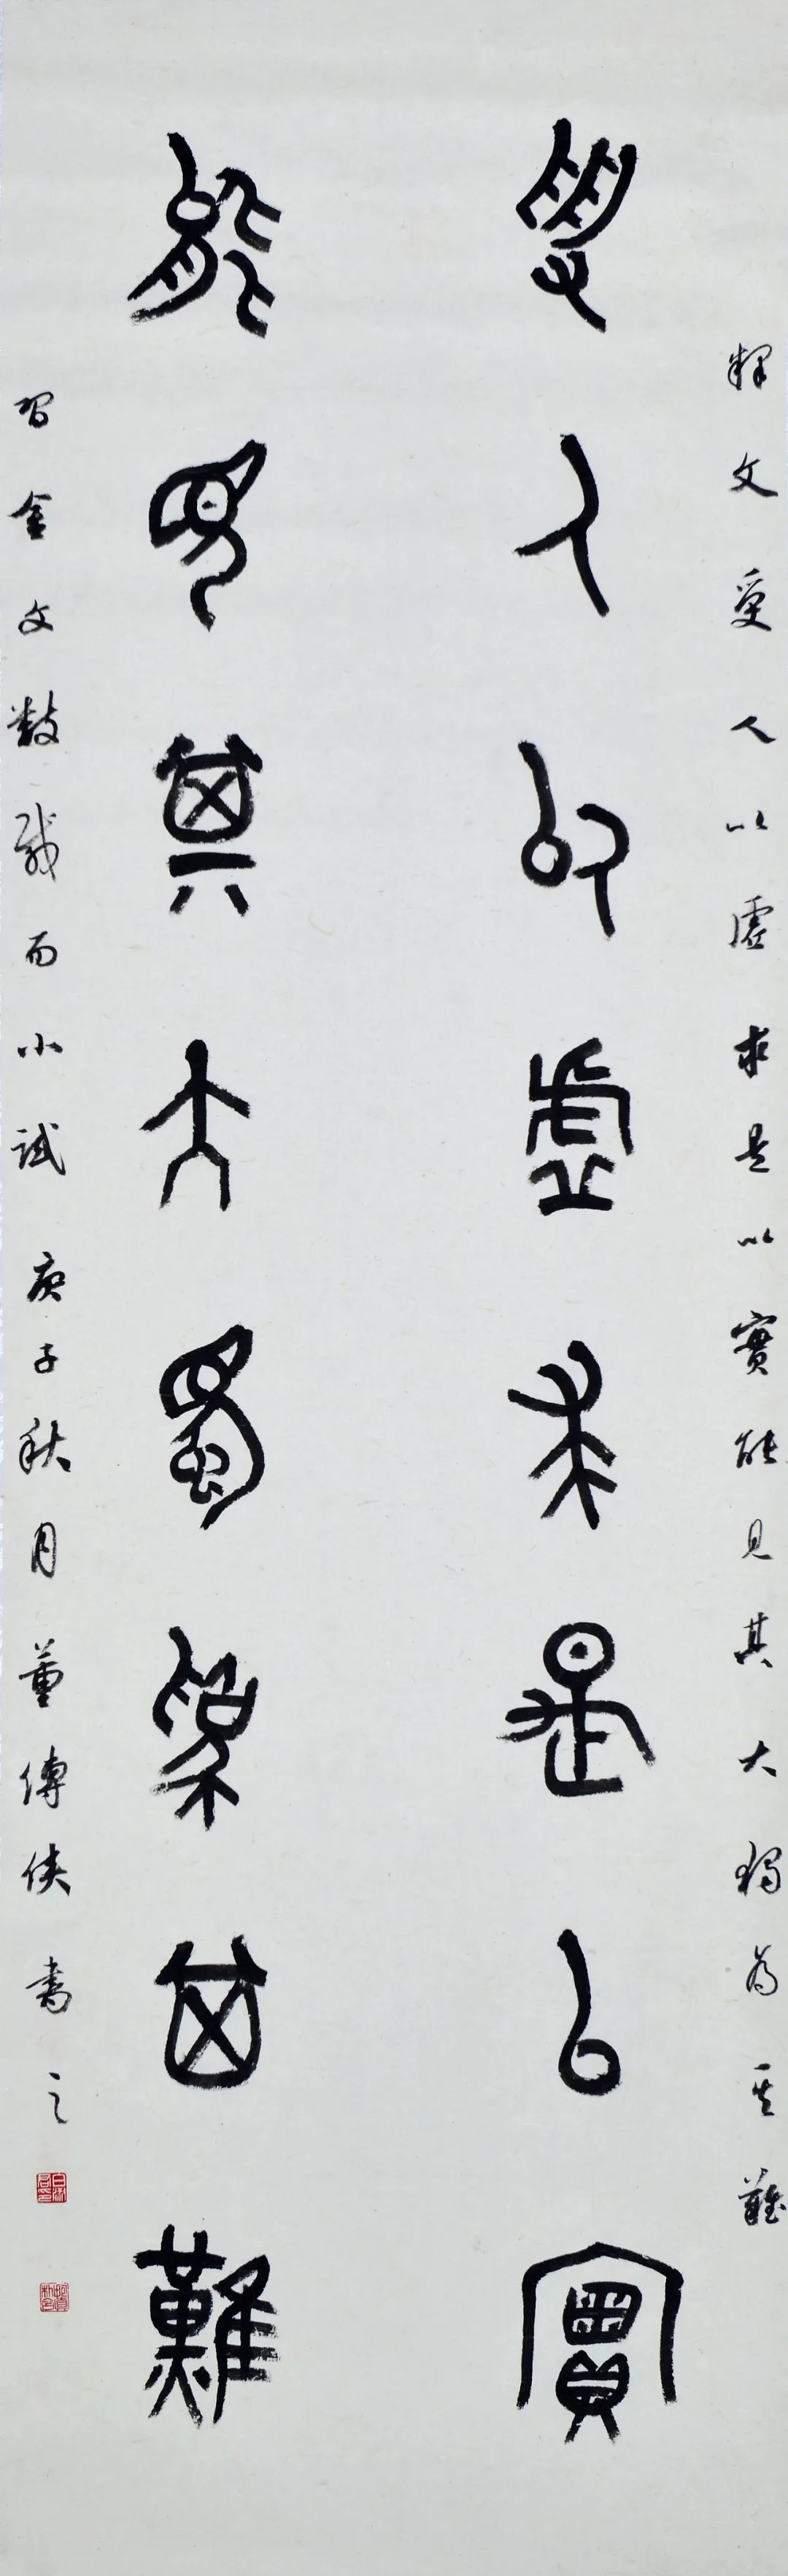 释文受人以虚求是以實能見其大獨為其難
受人以虚求是以實
能見其大獨為其難
習金文数載而小試庚子秋月董傳俠書之